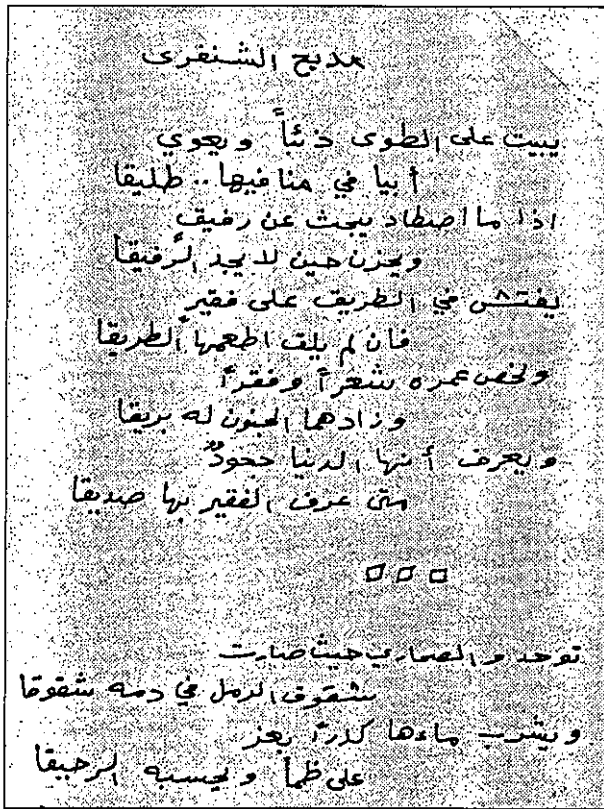 مديح الشنفرى
يبيت على الطوى ذئباً ويعوي
أبيا في منافيها.. طليقا
اذا ما اصطاد يبحث عن رفيق
ويحزن حين لا يجد الرَّفيقا
يفتش في الطريق على فقير
فان لم يلق اطعمها الطريقا
ولخص عمره شعراً وفقراً
وزادهما الجنون له بريقا
ويعرف أنها الدنيا جحودٌ
متى عرف الفقير بها صديقا
توحد والصحاري حيث صارت
شقوق الرمل في دمه شقوقا
ويشرب ماءها كدراً بعز
على ظمأ ويحسبه الرحيقا